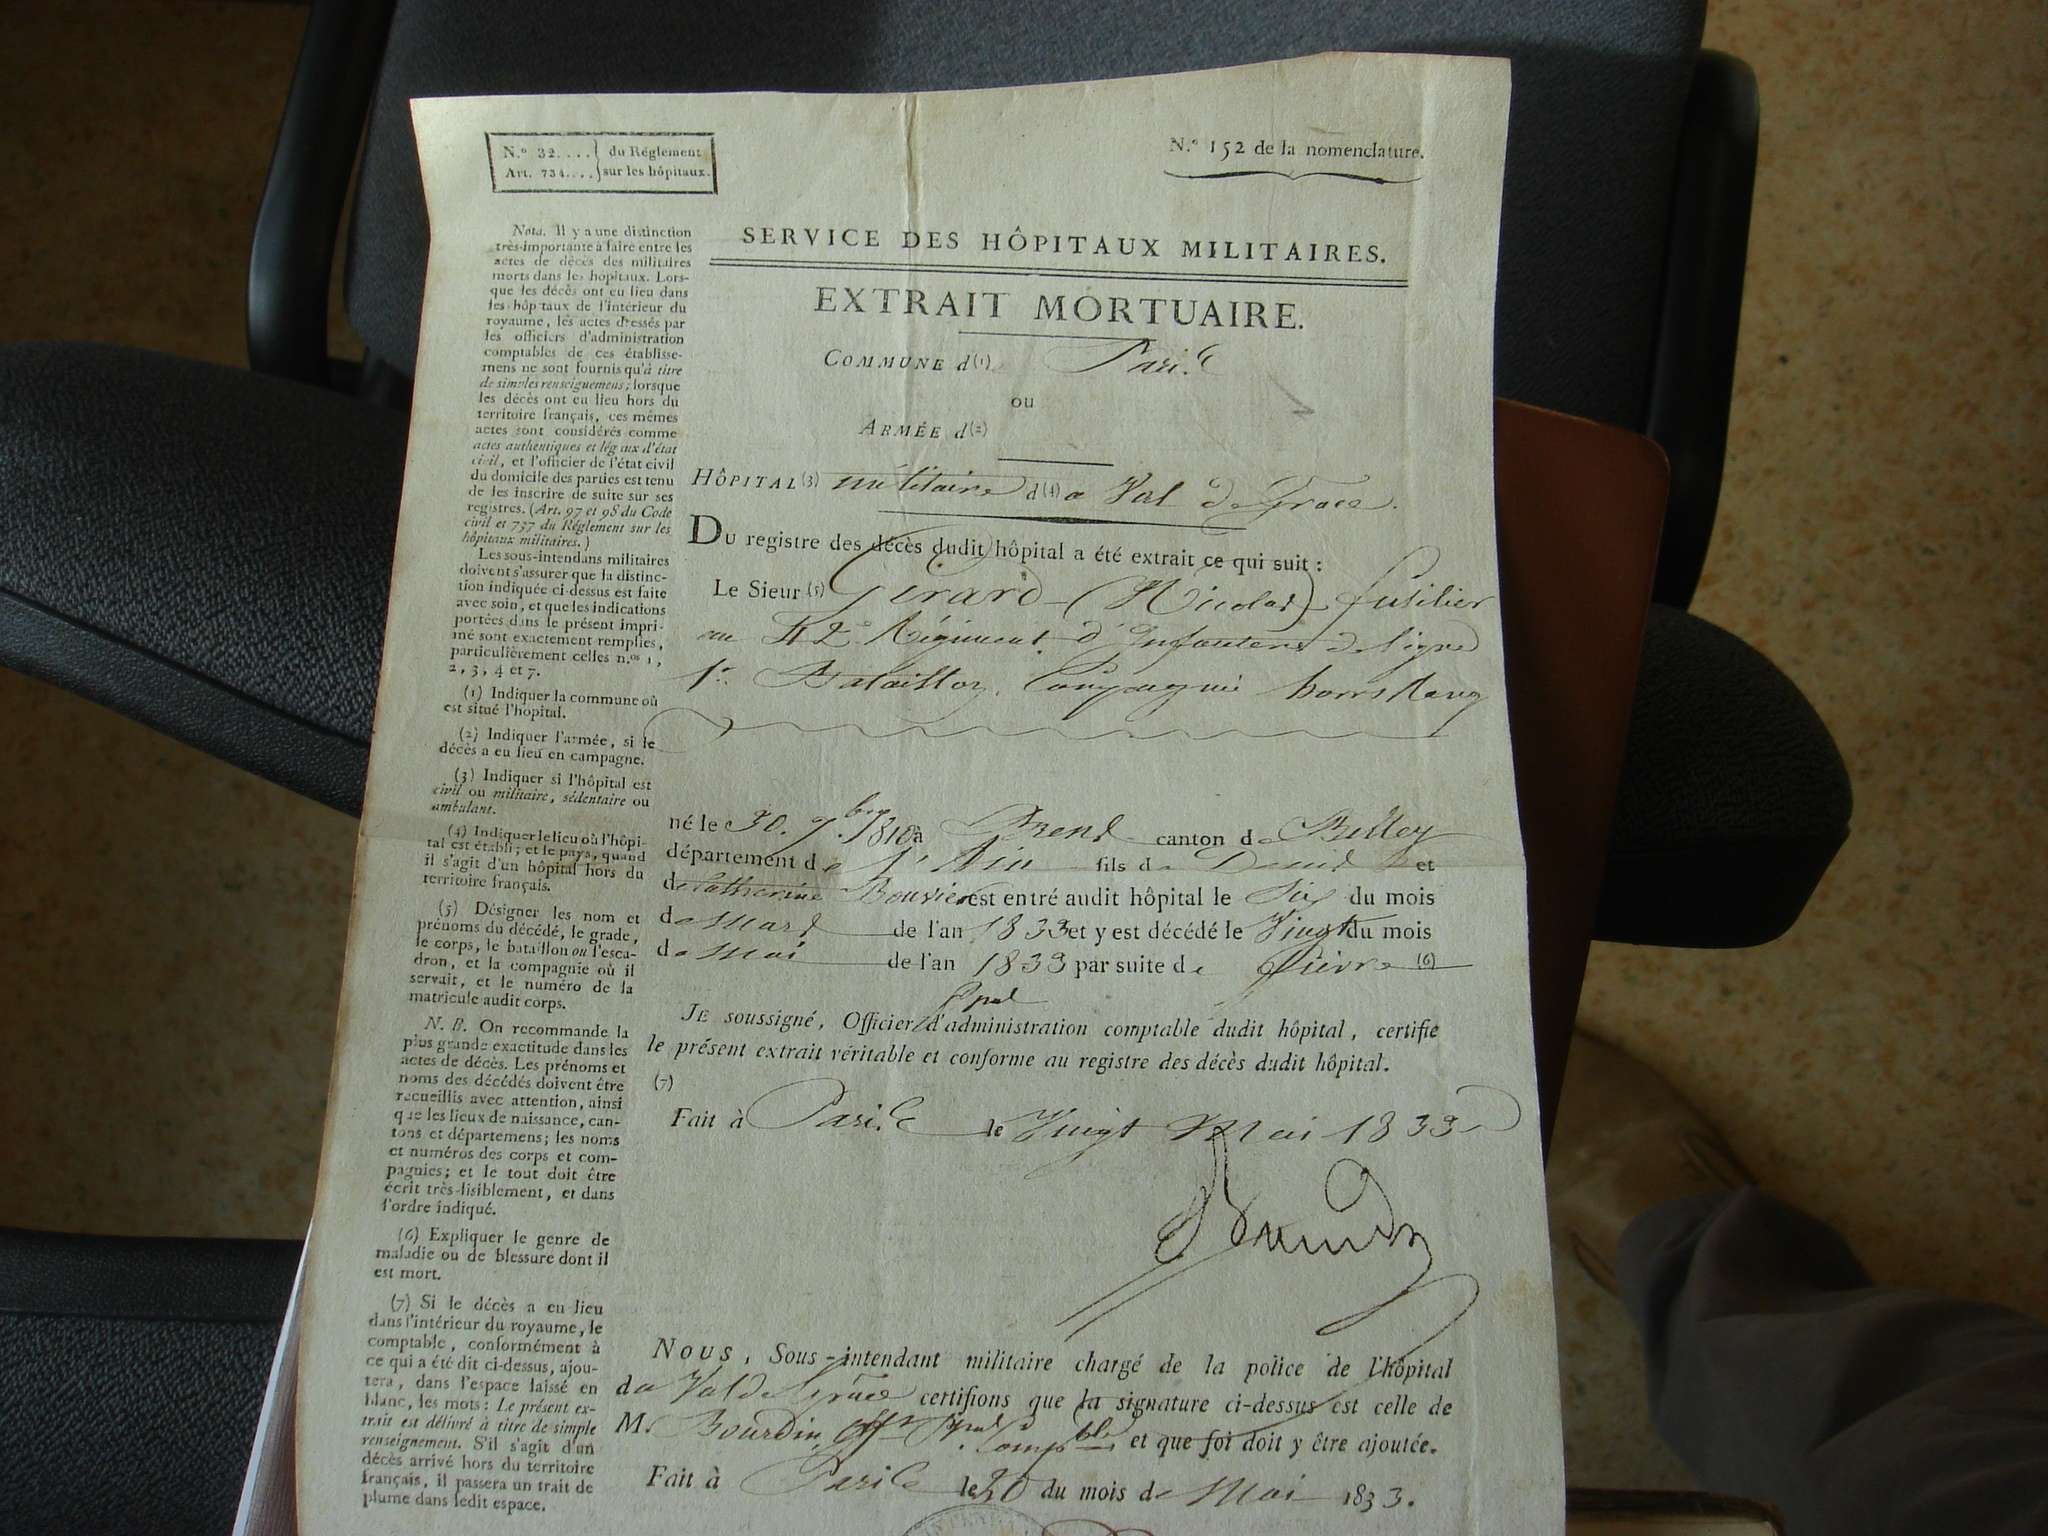 N.º 32.... } du Réglement
Art. 734.... } sur les hôpitaux.
N.º 152 de la nomenclature.
SERVICE DES HÔPITAUX MILITAIRES.
EXTRAIT MORTUAIRE.
COMMUNE d(1) Paris
OU
ARMÉE d(2)
HÔPITAL (3) militaire d(4)u Val de Grace.
DU registre des décès dudit hôpital a été extrait ce qui suit :
Le Sieur (5) Gérard (Nicolas) fusilier
au 42e Régiment d'Infanterie de ligne
1er Bataillon, Compagnie hors Rang
né le 30. 7bre 1810 à canton de Belley
département de l'Ain fils de Denis et
de Catherine Bouvier est entré audit hôpital le Six du mois
de Mars de l'an 1833 et y est décédé le Vingt du mois
de Mai de l'an 1833 par suite de fièvre (6)
ppal
JE soussigné, Officier d'administration comptable dudit hôpital, certifie
le présent extrait véritable et conforme au registre des décès dudit hôpital.
(7)
Fait à Paris le Vingt Mai 1833
Bourdin
NOUS, Sous-intendant militaire chargé de la police de l'hôpital
du Val de Grâce certifions que la signature ci-dessus est celle de
M. Bourdin, offer ppal Compble et que foi doit y être ajoutée.
Fait à Paris le 20 du mois de Mai 1833.
Nota. Il y a une distinction
très-importante à faire entre les
actes de décès des militaires
morts dans les hopitaux. Lors-
que les décès ont eu lieu dans
les hôpitaux de l'intérieur du
royaume, les actes dressés par
les officiers d'administration
comptables de ces établisse-
mens ne sont fournis qu'à titre
de simples renseignemens; lorsque
les décès ont eu lieu hors du
territoire français, ces mêmes
actes sont considérés comme
actes authentiques et légaux d'état
civil, et l'officier de l'état civil
du domicile des parties est tenu
de les inscrire de suite sur ses
registres. (Art. 97 et 98 du Code
civil et 737 du Réglement sur les
hôpitaux militaires.)
Les sous-intendans militaires
doivent s'assurer que la distinc-
tion indiquée ci-dessus est faite
avec soin, et que les indications
portées dans le présent impri-
mé sont exactement remplies,
particulièrement celles n.os 1,
2, 3, 4 et 7.
(1) Indiquer la commune où
est situé l'hôpital.
(2) Indiquer l'armée, si le
décès a eu lieu en campagne.
(3) Indiquer si l'hôpital est
civil ou militaire, sédentaire ou
ambulant.
(4) Indiquer le lieu où l'hôpi-
tal est établi; et le pays, quand
il s'agit d'un hôpital hors du
territoire français.
(5) Désigner les nom et
prénoms du décédé, le grade,
le corps, le bataillon ou l'esca-
dron, et la compagnie où il
servait, et le numéro de la
matricule audit corps.
N. B. On recommande la
plus grande exactitude dans les
actes de décès. Les prénoms et
noms des décédés doivent être
recueillis avec attention, ainsi
que les lieux de naissance, can-
tons et départemens; les noms
et numéros des corps et com-
pagnies; et le tout doit être
écrit très-lisiblement, et dans
l'ordre indiqué.
(6) Expliquer le genre de
maladie ou de blessure dont il
est mort.
(7) Si le décès a eu lieu
dans l'intérieur du royaume, le
comptable, conformément à
ce qui a été dit ci-dessus, ajou-
tera, dans l'espace laissé en
blanc, les mots: Le présent ex-
trait est délivré à titre de simple
renseignement. S'il s'agit d'un
décès arrivé hors du territoire
français, il passera un trait de
plume dans ledit espace.